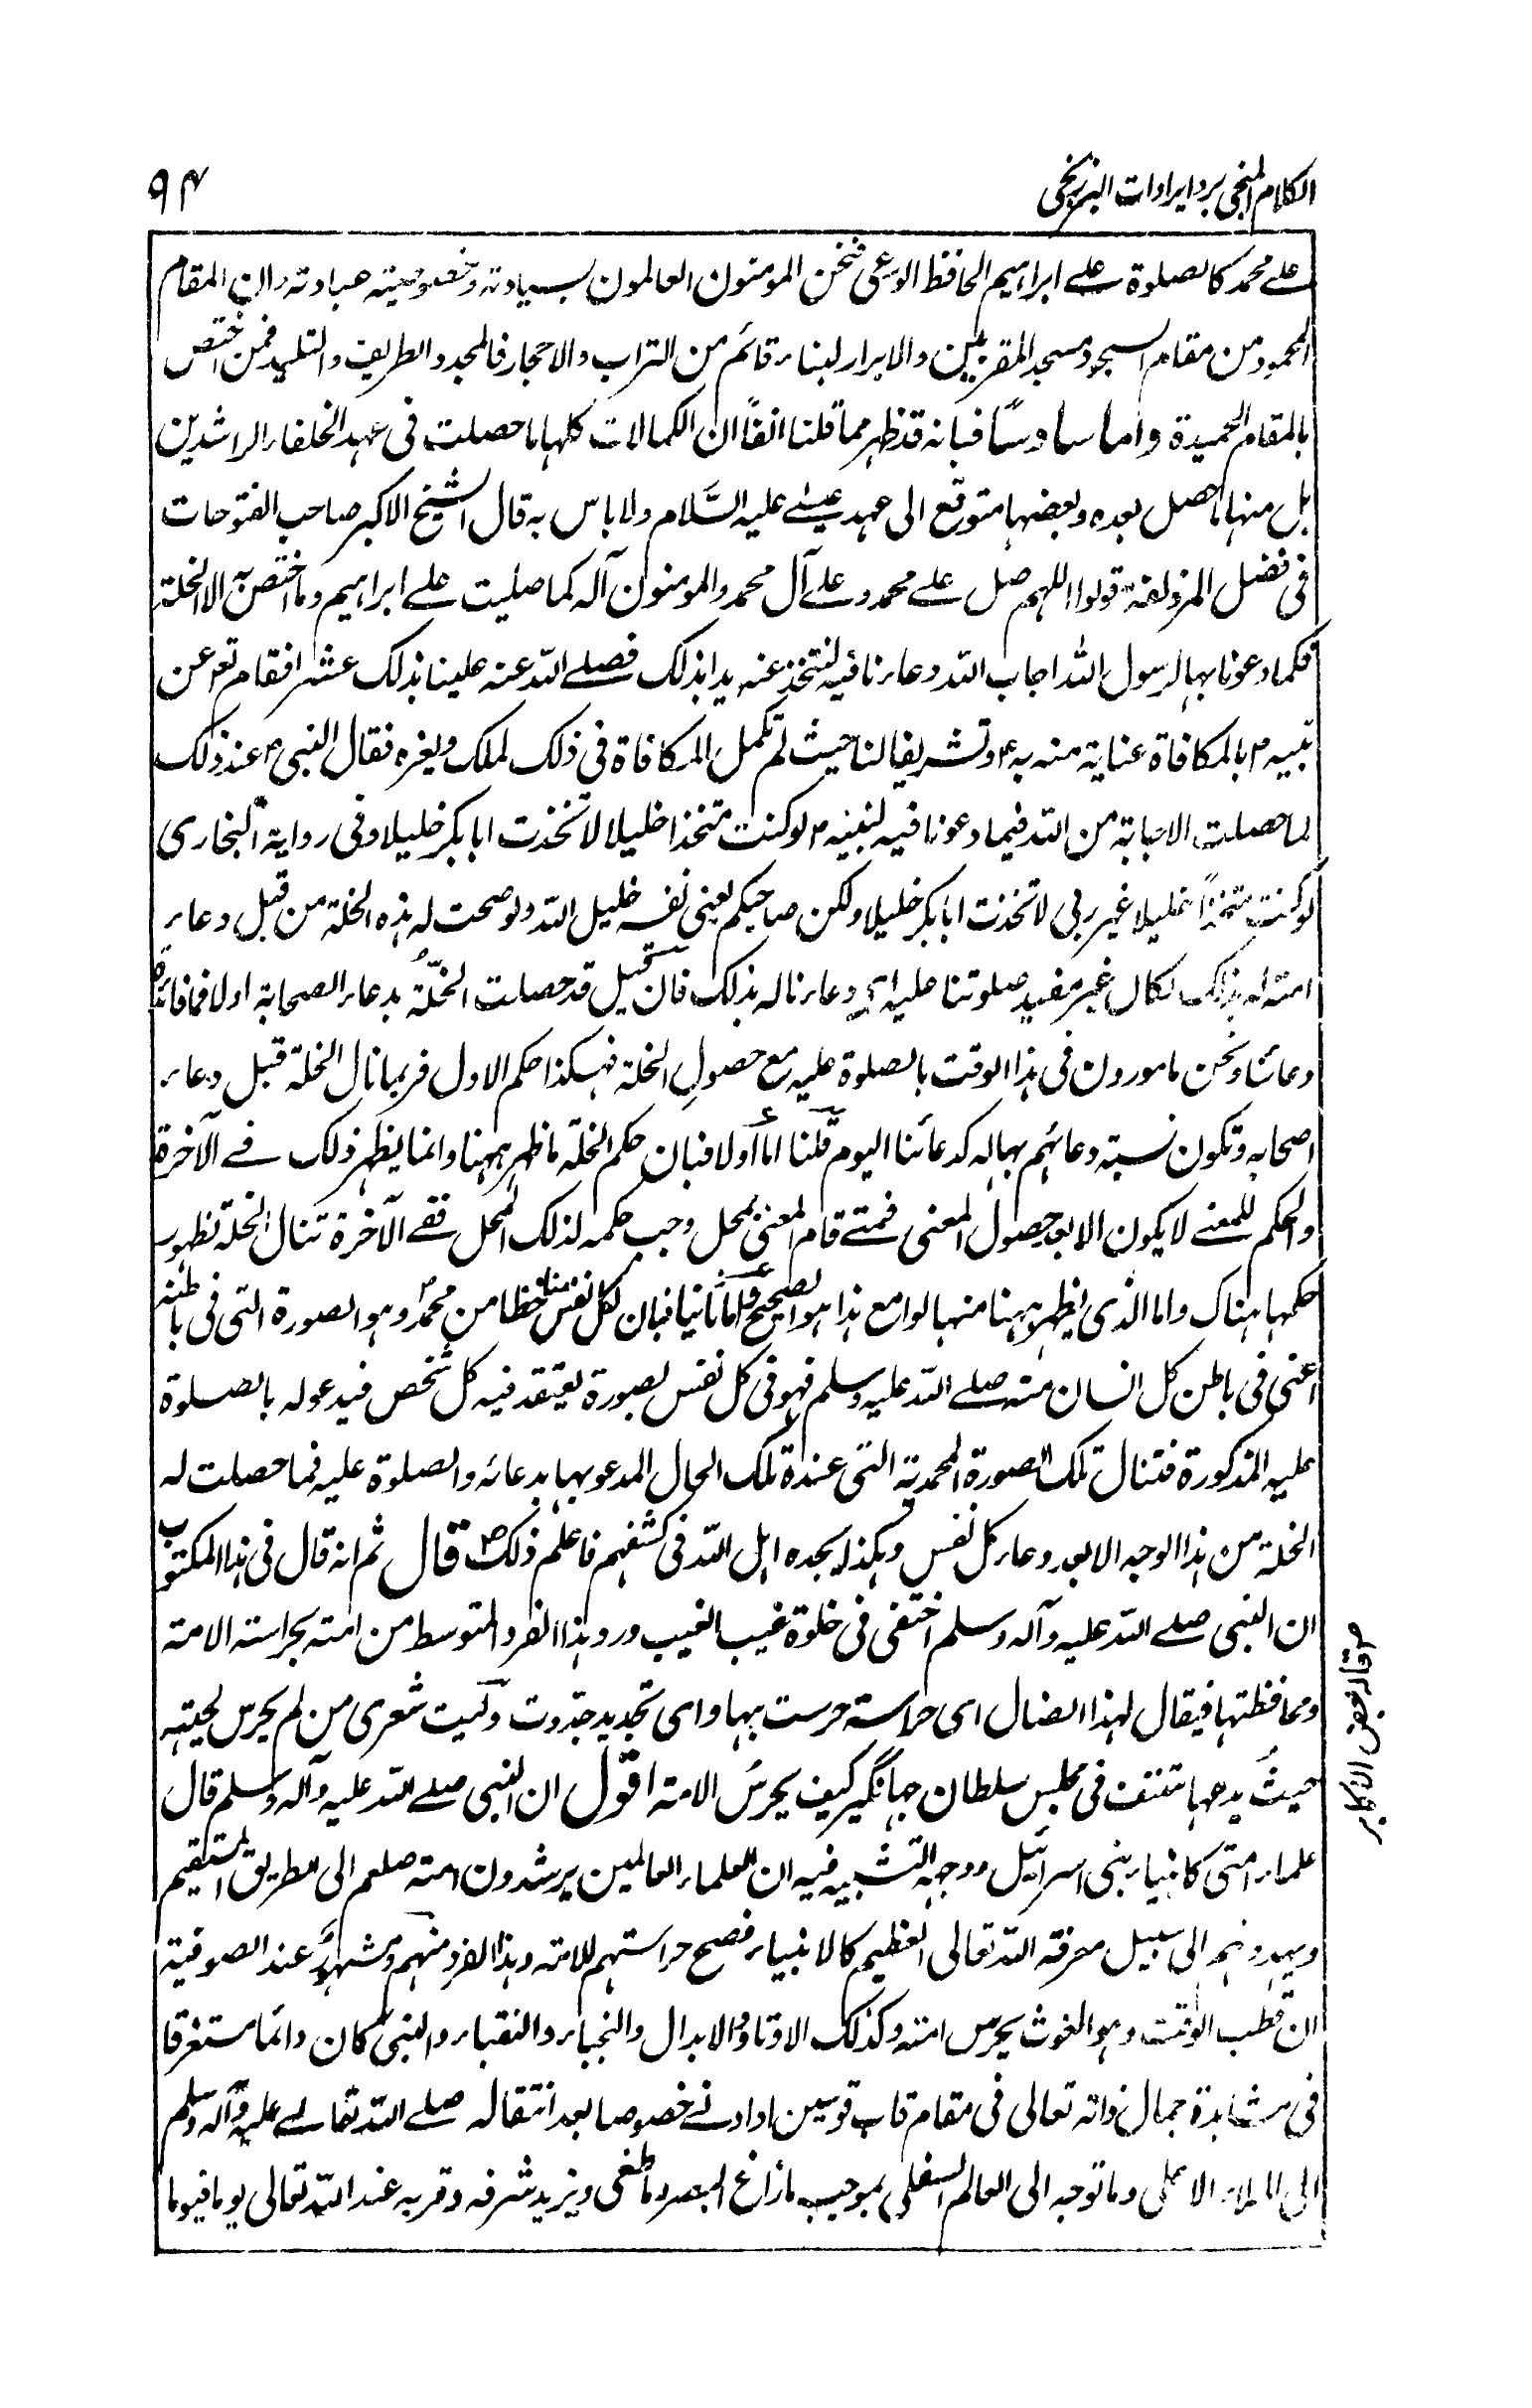 الكلام المنجى برد ايرادات البرزنجى
٩٤
على محمد كالصلوة على ابراهيم الحافظ الوعى فنحن المومنون العالمون بسيادته وخصوصية عبادته واين المقام
المحمود من مقام السجود ومسجد المقربين والابرار لبناء قائم من التراب والاحجار فالمجد والطريف والتليد فمن اختص
بالمقام الحميدة واما سادسًا فبانه قد ظهر مما قلنا انفًا ان الكمالات كلها ما حصلت فى عهد الخلفاء الراشدين
بل منها ما حصل بعده وبعضها متوقع الى عهد عيسى عليه السَّلام ولا باس به قال الشيخ الاكبر صاحب الفتوحات
فى فضل المزدلفة قولوا اللهم صل على محمد وعلى آل محمد والمومنون آله كما صليت على ابراهيم وما اختص به الا الخلة
فكما دعونا بها لرسول الله اجاب الله دعاءنا فيه لنتخذ عنه يدا بذلك فصلى الله عنه علينا بذلك عشرا فقام تع عن
نبيه ؐ بالمكافاة عناية منه به ؐ وتشريفا لنا حيث لم تكمل المكافاة فى ذلك لملك وغيره فقال النبى ؐ عند ذلك
لما حصلت الاجابة من الله فيما دعونا فيه لنبيه ؐ لو كنت متخذا خليلا لاتخذت ابا بكر خليلا وفى رواية البخارى
لو كنت متخذًا خليلا غير ربى لاتخذت ابا بكر خليلا ولكن صاحبكم يعنى نفسه خليل الله ولو صحت له هذه الخلة من قبل دعاء
امته له بذلك لكان غير مفيد صلوتنا عليه اى دعاءنا له بذلك فان قيل قد حصلت الخلّة بدعاء الصحابة اولا فما فائدة
دعائنا ونحن مامورون فى هذا الوقت بالصلوة عليه مع حصول الخلة فهكذا حكم الاول فربما نال الخلة قبل دعاء
اصحابه وتكون نسبة دعائهم بها له كدعائنا اليوم قلنا اما اولا فبان حكم الخلة ما ظهر ههنا وانما يظهر ذلك فى الآخرة
والحكم للمعنى لا يكون الا بعد حصول المعنى فمتى قام المعنى بمحل وجب حكمه لذلك المحل ففى الآخرة تنال الخلة لظهور
حكمها هناك واما الذى يظهر ههنا منها لوامع هذا هو الصحيح واما ثانيا فبان لكل نفس منا حظا من محمد ؐ وهو الصورة التى فى باطنه
اعنى فى باطن كل انسان منه صلى الله عليه وسلم فهو فى كل نفس بصورة يعتقد فيه كل شخص فيدعو له بالصلوة
عليه المذكورة فتنال تلك الصورة المحمدية التى عنده تلك الحال المدعو بها بدعائه والصلوة عليه فما حصلت له
الخلة من هذا الوجه الا بعد دعاء كل نفس وهكذا يجده اهل الله فى كشفهم فاعلم ذلك قال ثم انه قال فى هذا المكتوب
ان النبى صلى الله عليه وآله وسلم اختفى فى خلوة غيب الغيب ورد هذا الفرد المتوسط من امته بحراسته الامة
ومحافظتها فيقال لهذا الضال اى حراسة حرست بها واى تجديد جدّدت وليت شعرى من لم يحرس لحيته
حيث يدعها تنتف فى مجلس سلطان جهانگير كيف يحرس الامة اقول ان النبى صلى الله عليه وآله وسلم قال
علماء امتى كانبياء بنى اسرائيل ووجه التشبيه فيه ان العلماء العالمين يرشدون امته صلعم الى الطريق المستقيم
ويهدونهم الى سبيل معرفة الله تعالى العظيم كالانبياء فصح حراستهم للامة وهذا الفرد منهم ومشهور عند الصوفية
ان قطب الوقت وهو الغوث يحرس امته وكذلك الاوتاد والابدال والنجباء والنقباء والنبى ؐ كان دائما مستغرقا
فى مشاهدة جمال ذاته تعالى فى مقام قاب قوسين او ادنى خصوصا بعد انتقاله صلى الله تعالى عليه وآله وسلم
الى الملاء الاعلى وما توجه الى العالم السفلى بموجب ما زاغ البصر وما طغى ويزيد شرفه وقربه عند الله تعالى يوما فيوما
قاله بعض الاكابر